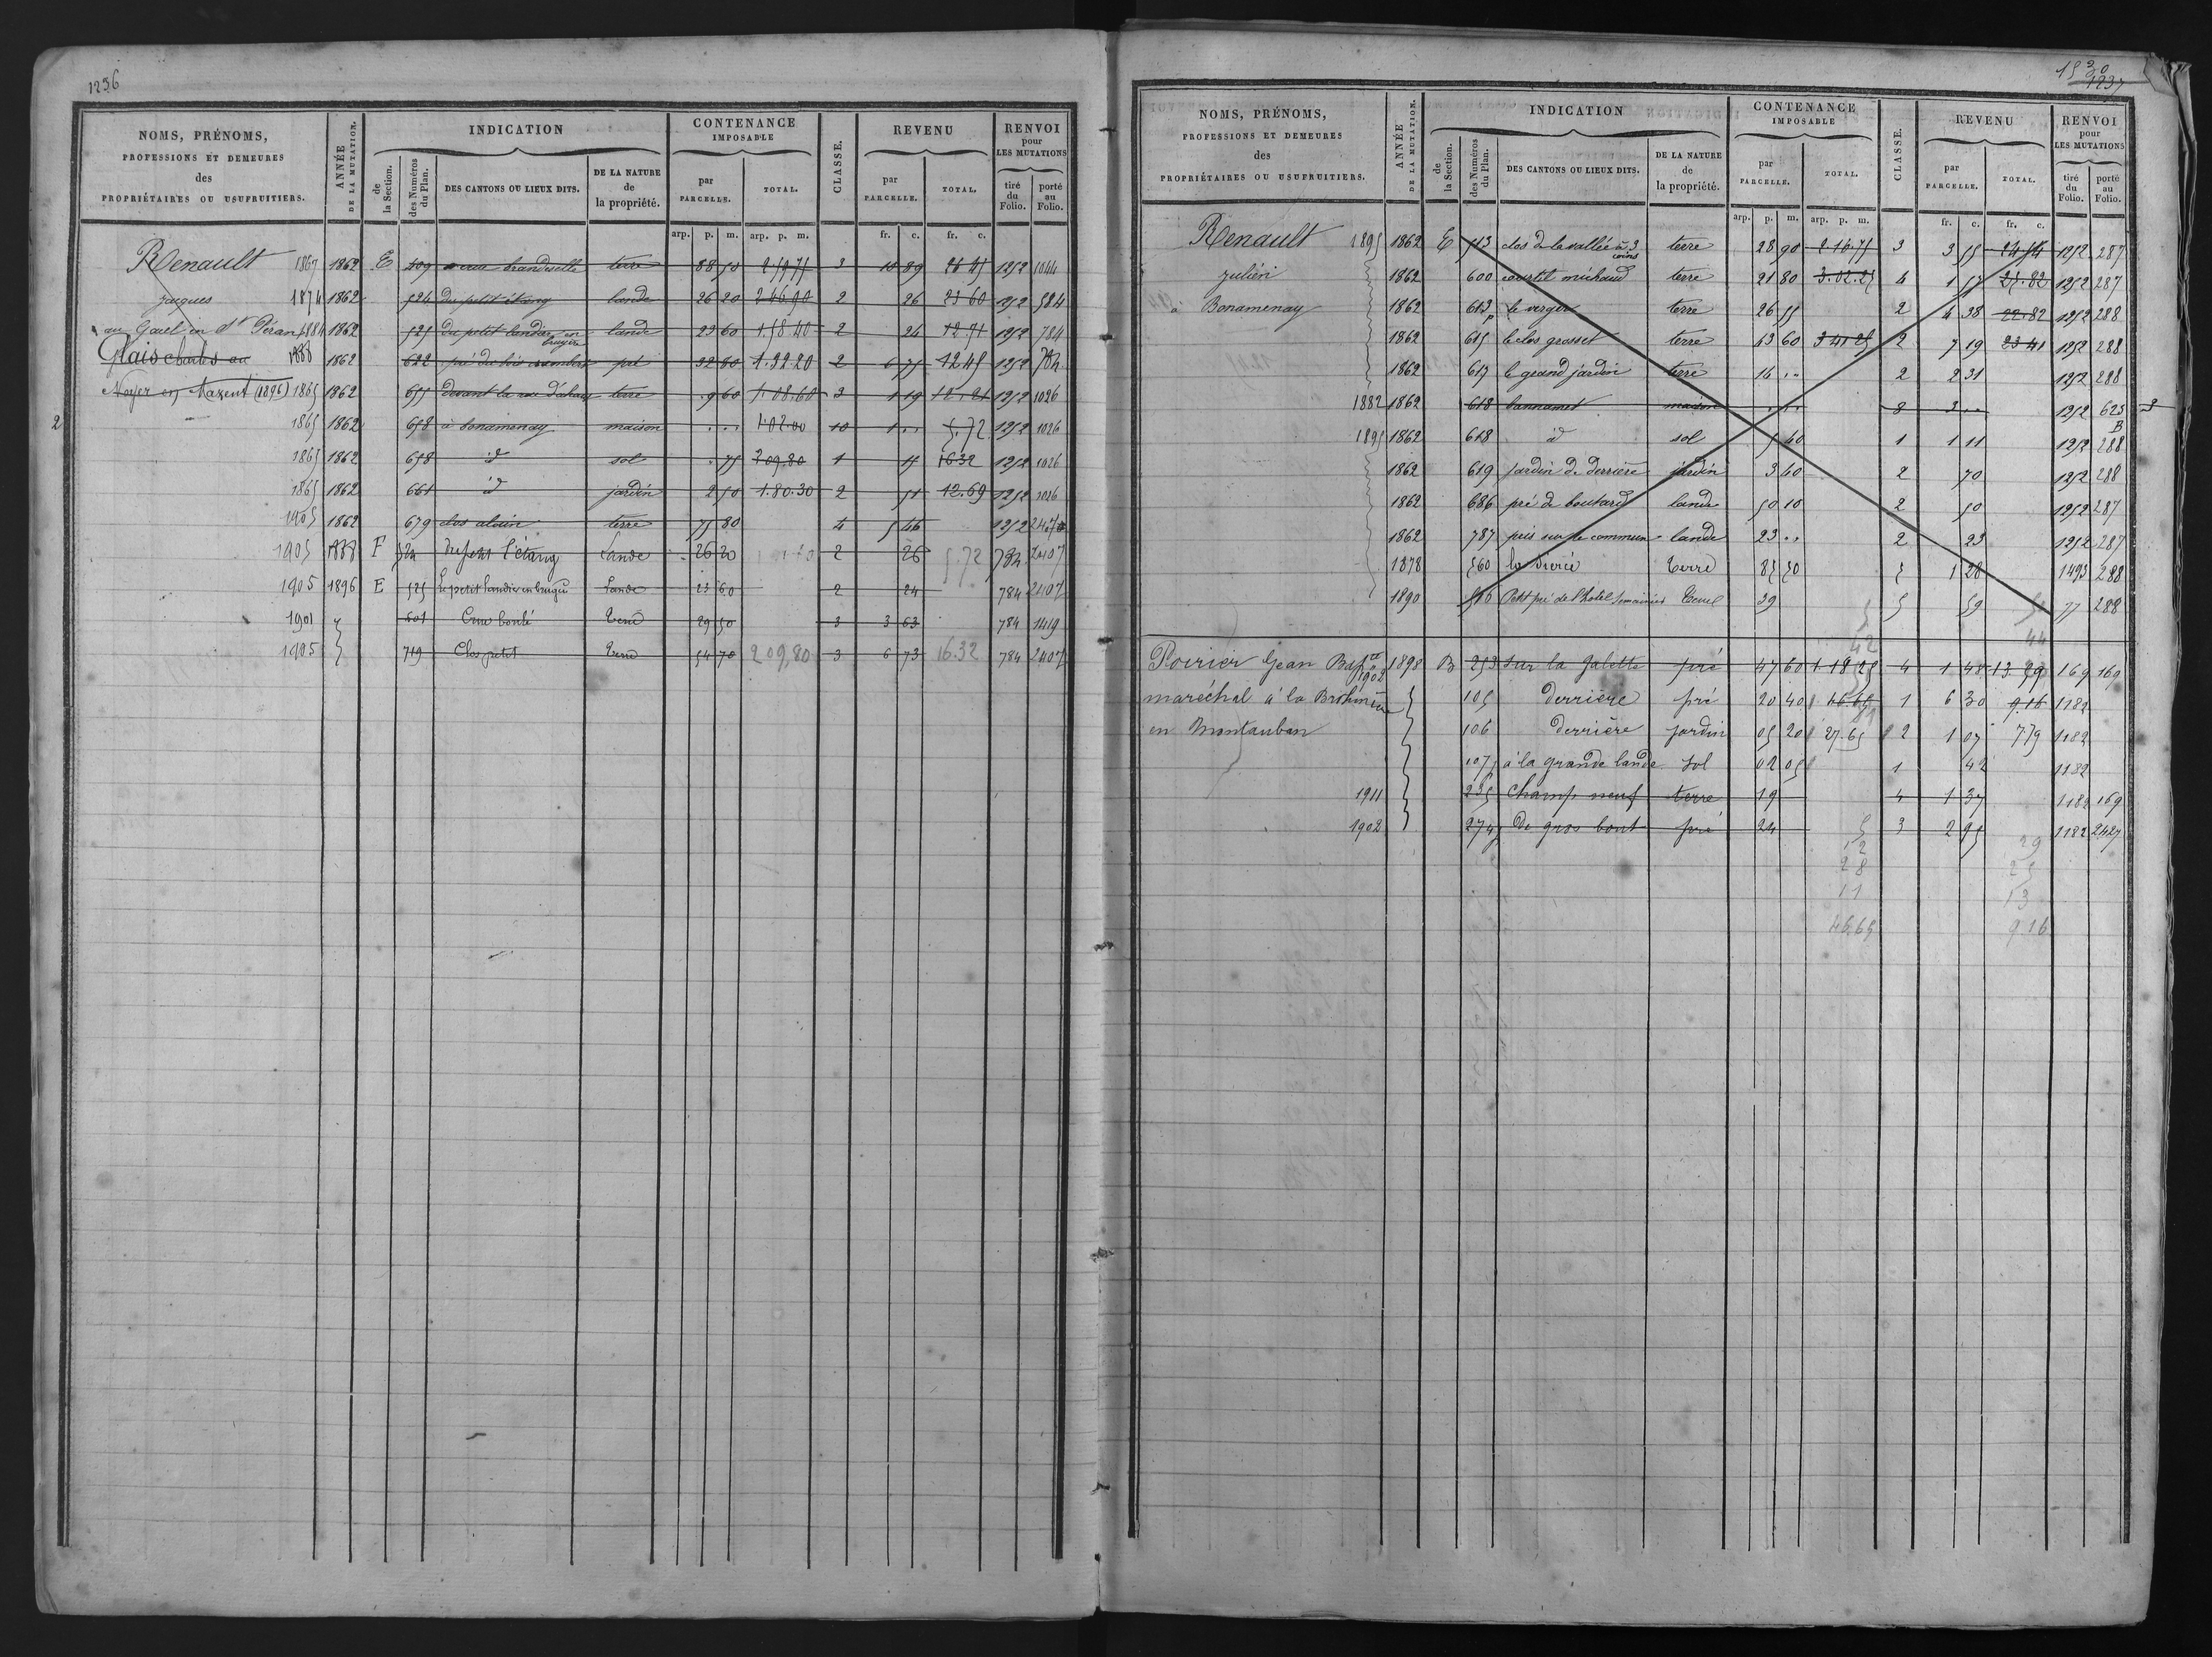 1236
NOMS, PRÉNOMS, PROFESSIONS ET DEMEURES des PROPRIÉTAIRES OU USUFRUITIERS.
ANNÉE DE LA MUTATION.
INDICATION
de la Section.
des Numéros du Plan.
DES CANTONS OU LIEUX DITS.
DE LA NATURE de la propriété.
CONTENANCE IMPOSABLE
par PARCELLE.
TOTAL.
CLASSE.
REVENU
par PARCELLE.
TOTAL.
RENVOI pour LES MUTATIONS
tiré du Folio.
porté au Folio.
arp. p. m. arp. p. m. fr. c. fr. c.
Renault 1867 1862 E 409 terre 88 50 2.59.75 3 10 89 1252 1044
jacques 1874 1862 524 du petit étang lande 26 20 2.46.90 2 26 23 60 1252 584
au Gael en St Péran 1884 1862 525 du petit landier en bruyère lande 23 60 1.58.40 2 24 12.71 1252 784
Glais charles au 1888 1862 622 pré du bois pré 32 80 1.32.20 2 6 75 12.45 1252 784
Noyer en Maxent (1896) 1865 1862 655 devant la terre 9 60 1.08.60 3 1 19 1252 1026
2 1865 1862 658 à bonamenay maison . . . 1.02.00 10 1 . . 5.72 1252 1026
1865 1862 658 id sol . 75 209.80 1 16.32 1252 1026
1865 1862 661 id jardin 2 50 1.80.30 2 51 12.69 1252 1026
1905 1862 679 clos alain terre 75 80 4 5 46 1252 2407
1905 1888 F 524 Du petit l'étang Lande 26 20 2 26 5.72 784 2407
1905 1896 E 525 Le petit landier en Lande 23 60 2 24 784 2407
1901 501 Terre 29 50 3 3 63 784 1419
1905 719 Clos petit Terre 54 70 209,80 3 6 73 16.32 784 2407
1530
1237
NOMS, PRÉNOMS, PROFESSIONS ET DEMEURES des PROPRIÉTAIRES OU USUFRUITIERS.
ANNÉE DE LA MUTATION.
INDICATION
de la Section.
des Numéros du Plan.
DES CANTONS OU LIEUX DITS.
DE LA NATURE de la propriété.
CONTENANCE IMPOSABLE
par PARCELLE.
TOTAL.
CLASSE.
REVENU
par PARCELLE.
TOTAL.
RENVOI pour LES MUTATIONS
tiré du Folio.
porté au Folio.
arp. p. m. arp. p. m. fr. c. fr. c.
Renault 1895 1862 E 513 clos de la vallée à 3 coins terre 28 90 2.16.75 3 3 55 24 54 1252 287
julien 1862 600 courtil michaud terre 21 80 3.02.25 4 1 57 25.82 1252 287
à Bonamenay 1862 613p le verger terre 26 55 2 4 38 22.82 1252 288
1862 615 le clos grosset terre 43 60 3 41 25 2 7 19 23 41 1252 288
1862 617 le grand jardin terre 14 . . 2 2 31 1252 288
1882 1862 618 maison . . . 8 3 . . 1252 623 3
1895 1862 618 id sol 5 40 1 1 11 1252 B 288
1862 619 jardin de derrière jardin 3 40 2 70 1252 288
1862 686 pré de boutard lande 50 10 2 50 1252 287
1862 787 pris sur le commun lande 23 . . 2 23 1252 287
1878 560 Terre 85 50 5 1 28 1493 288
1890 516 Petit pré de l'hôtel 39 5 59 77 288
42 44
Poirier Jean Bapte 1902 1898 B 253 Sur la Galette pré 47 60 1 18 25 4 1 48 13 29 169 169
maréchal à la Brohinière 105 Derrière pré 20 40 46.65 1 6 30 9.16 1182
en Montauban 106 Derrière jardin 05 20 27.65 2 1 07 7.79 1182
1075 à la grande lande Sol 02 05 1 42 1182
1911 235 Champ neuf terre 19 4 1 37 1182 169
1902 De gros bout pré 24 3 2 95 1182 2427
5 29
12 25
28 13
11
46,65 9.16